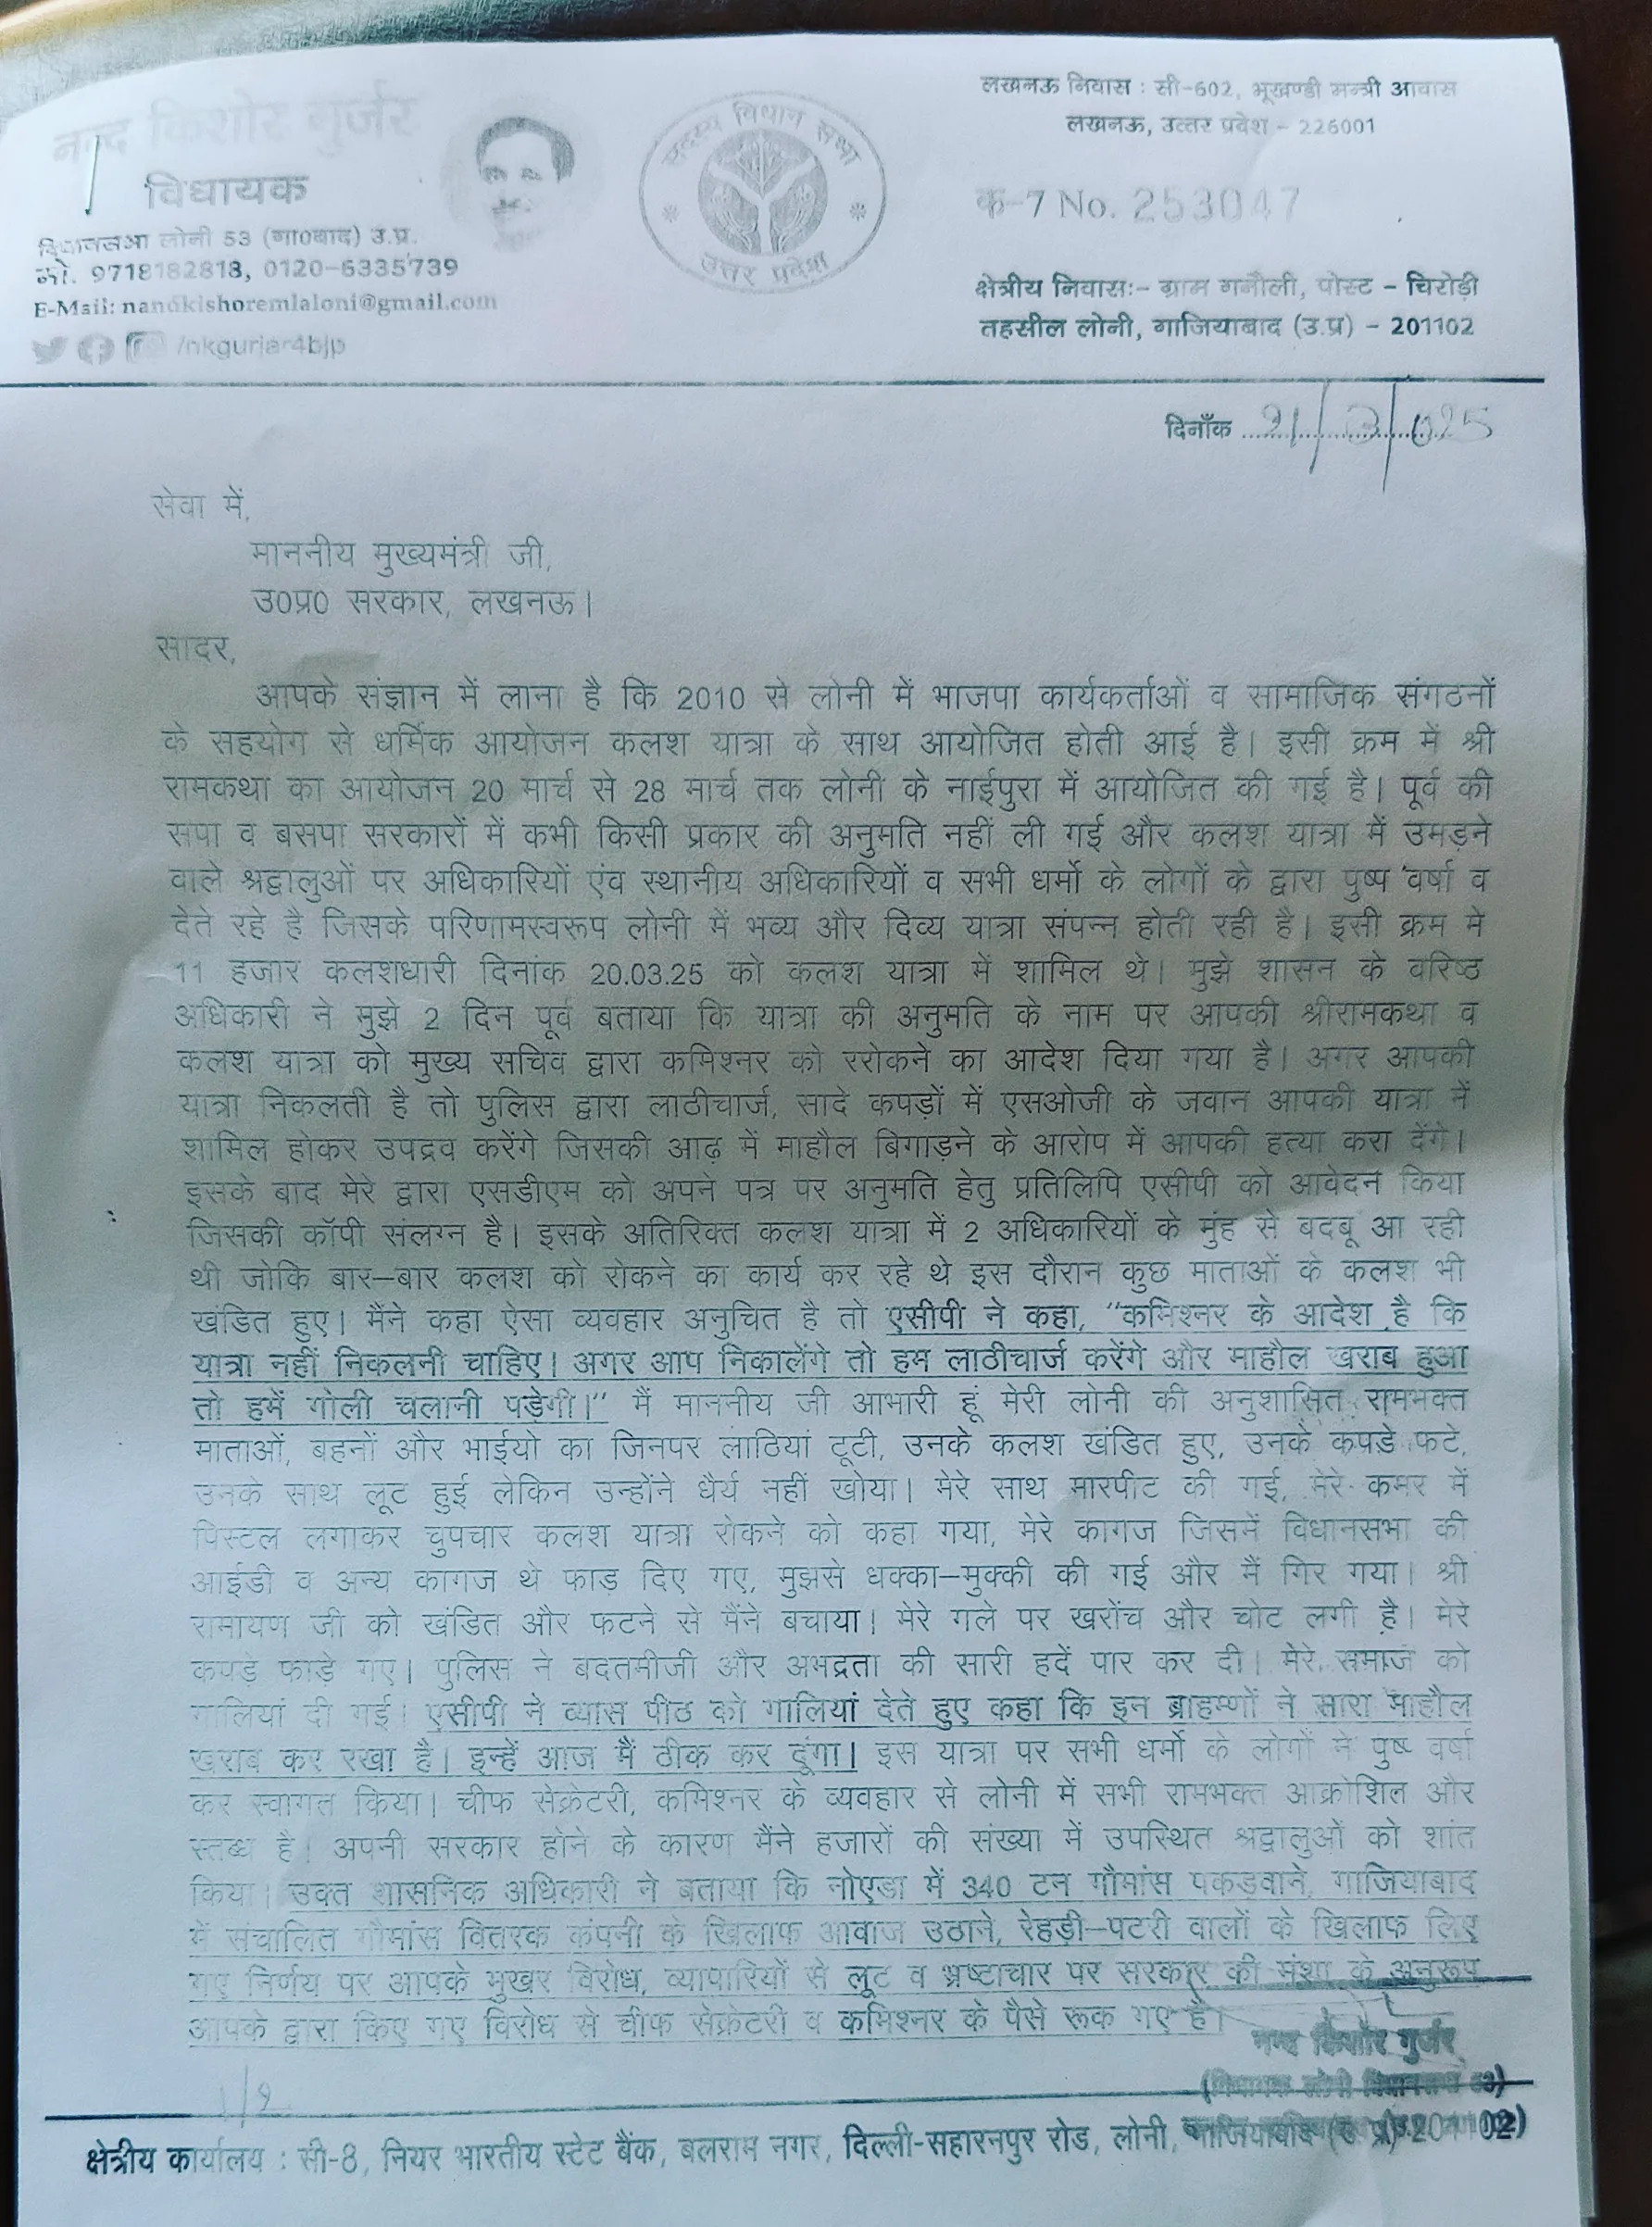 नन्द किशोर गुर्जर
विधायक
विधानसभा लोनी 53 (गा०बाद) उ.प्र.
मो. 9718182818, 0120-6335739
E-Mail: nandkishoremlaloni@gmail.com
/nkgurjar4bjp
सदस्य विधान सभा
उत्तर प्रदेश
लखनऊ निवास : सी-602, भूखण्डी मन्त्री आवास
लखनऊ, उत्तर प्रदेश - 226001
क-7 No. 253047
क्षेत्रीय निवास:- ग्राम गनौली, पोस्ट - चिरोड़ी
तहसील लोनी, गाजियाबाद (उ.प्र) - 201102
दिनाँक 21/3/025
सेवा में,
माननीय मुख्यमंत्री जी,
उ0प्र0 सरकार, लखनऊ।
सादर,
आपके संज्ञान में लाना है कि 2010 से लोनी में भाजपा कार्यकर्ताओं व सामाजिक संगठनों
के सहयोग से धर्मिक आयोजन कलश यात्रा के साथ आयोजित होती आई है। इसी क्रम में श्री
रामकथा का आयोजन 20 मार्च से 28 मार्च तक लोनी के नाईपुरा में आयोजित की गई है। पूर्व की
सपा व बसपा सरकारों में कभी किसी प्रकार की अनुमति नहीं ली गई और कलश यात्रा में उमड़ने
वाले श्रद्वालुओं पर अधिकारियों एंव स्थानीय अधिकारियों व सभी धर्मो के लोगों के द्वारा पुष्प वर्षा व
देते रहे है जिसके परिणामस्वरूप लोनी में भव्य और दिव्य यात्रा संपन्न होती रही है। इसी क्रम मे
11 हजार कलशधारी दिनांक 20.03.25 को कलश यात्रा में शामिल थे। मुझे शासन के वरिष्ठ
अधिकारी ने मुझे 2 दिन पूर्व बताया कि यात्रा की अनुमति के नाम पर आपकी श्रीरामकथा व
कलश यात्रा को मुख्य सचिव द्वारा कमिश्नर को ररोकने का आदेश दिया गया है। अगर आपकी
यात्रा निकलती है तो पुलिस द्वारा लाठीचार्ज, सादे कपड़ों में एसओजी के जवान आपकी यात्रा में
शामिल होकर उपद्रव करेंगे जिसकी आढ़ में माहौल बिगाड़ने के आरोप में आपकी हत्या करा देंगे।
इसके बाद मेरे द्वारा एसडीएम को अपने पत्र पर अनुमति हेतु प्रतिलिपि एसीपी को आवेदन किया
जिसकी कॉपी संलग्न है। इसके अतिरिक्त कलश यात्रा में 2 अधिकारियों के मुंह से बदबू आ रही
थी जोकि बार–बार कलश को रोकने का कार्य कर रहे थे इस दौरान कुछ माताओं के कलश भी
खंडित हुए। मैंने कहा ऐसा व्यवहार अनुचित है तो एसीपी ने कहा, “कमिश्नर के आदेश है कि
यात्रा नहीं निकलनी चाहिए। अगर आप निकालेंगे तो हम लाठीचार्ज करेंगे और माहौल खराब हुआ
तो हमें गोली चलानी पडेगी।” मैं माननीय जी आभारी हूं मेरी लोनी की अनुशासित रामभक्त
माताओं, बहनों और भाईयो का जिनपर लाठियां टूटी, उनके कलश खंडित हुए, उनके कपडे फटे,
उनके साथ लूट हुई लेकिन उन्होंने धैर्य नहीं खोया। मेरे साथ मारपीट की गई, मेरे कमर में
पिस्टल लगाकर चुपचार कलश यात्रा रोकने को कहा गया, मेरे कागज जिसमें विधानसभा की
आईडी व अन्य कागज थे फाड़ दिए गए, मुझसे धक्का–मुक्की की गई और मैं गिर गया। श्री
रामायण जी को खंडित और फटने से मैंने बचाया। मेरे गले पर खरोंच और चोट लगी है। मेरे
कपडे फाडे गए। पुलिस ने बदतमीजी और अभद्रता की सारी हदें पार कर दी। मेरे समाज को
गालियां दी गई। एसीपी ने व्यास पीठ को गालियां देते हुए कहा कि इन ब्राहम्णों ने सारा माहौल
खराब कर रखा है। इन्हें आज मैं ठीक कर दूंगा। इस यात्रा पर सभी धर्मो के लोगों ने पुष्प वर्षा
कर स्वागत किया। चीफ सेक्रेटरी, कमिश्नर के व्यवहार से लोनी में सभी रामभक्त आक्रोशित और
स्तब्ध है। अपनी सरकार होने के कारण मैंने हजारों की संख्या में उपस्थित श्रद्वालुओं को शांत
किया। उक्त शासनिक अधिकारी ने बताया कि नोएडा में 340 टन गौमांस पकडवाने, गाजियाबाद
में संचालित गौमांस वितरक कंपनी के खिलाफ आवाज उठाने, रेहड़ी–पटरी वालों के खिलाफ लिए
गए निर्णय पर आपके मुखर विरोध, व्यापारियों से लूट व भ्रष्टाचार पर सरकार की मंशा के अनुरूप
आपके द्वारा किए गए विरोध से चीफ सेक्रेटरी व कमिश्नर के पैसे रूक गए है।
नन्द किशोर गुर्जर
(विधायक लोनी विधानसभा 53)
1/2
क्षेत्रीय कार्यालय : सी-8, नियर भारतीय स्टेट बैंक, बलराम नगर, दिल्ली-सहारनपुर रोड, लोनी, गाजियाबाद (उ. प्र.)